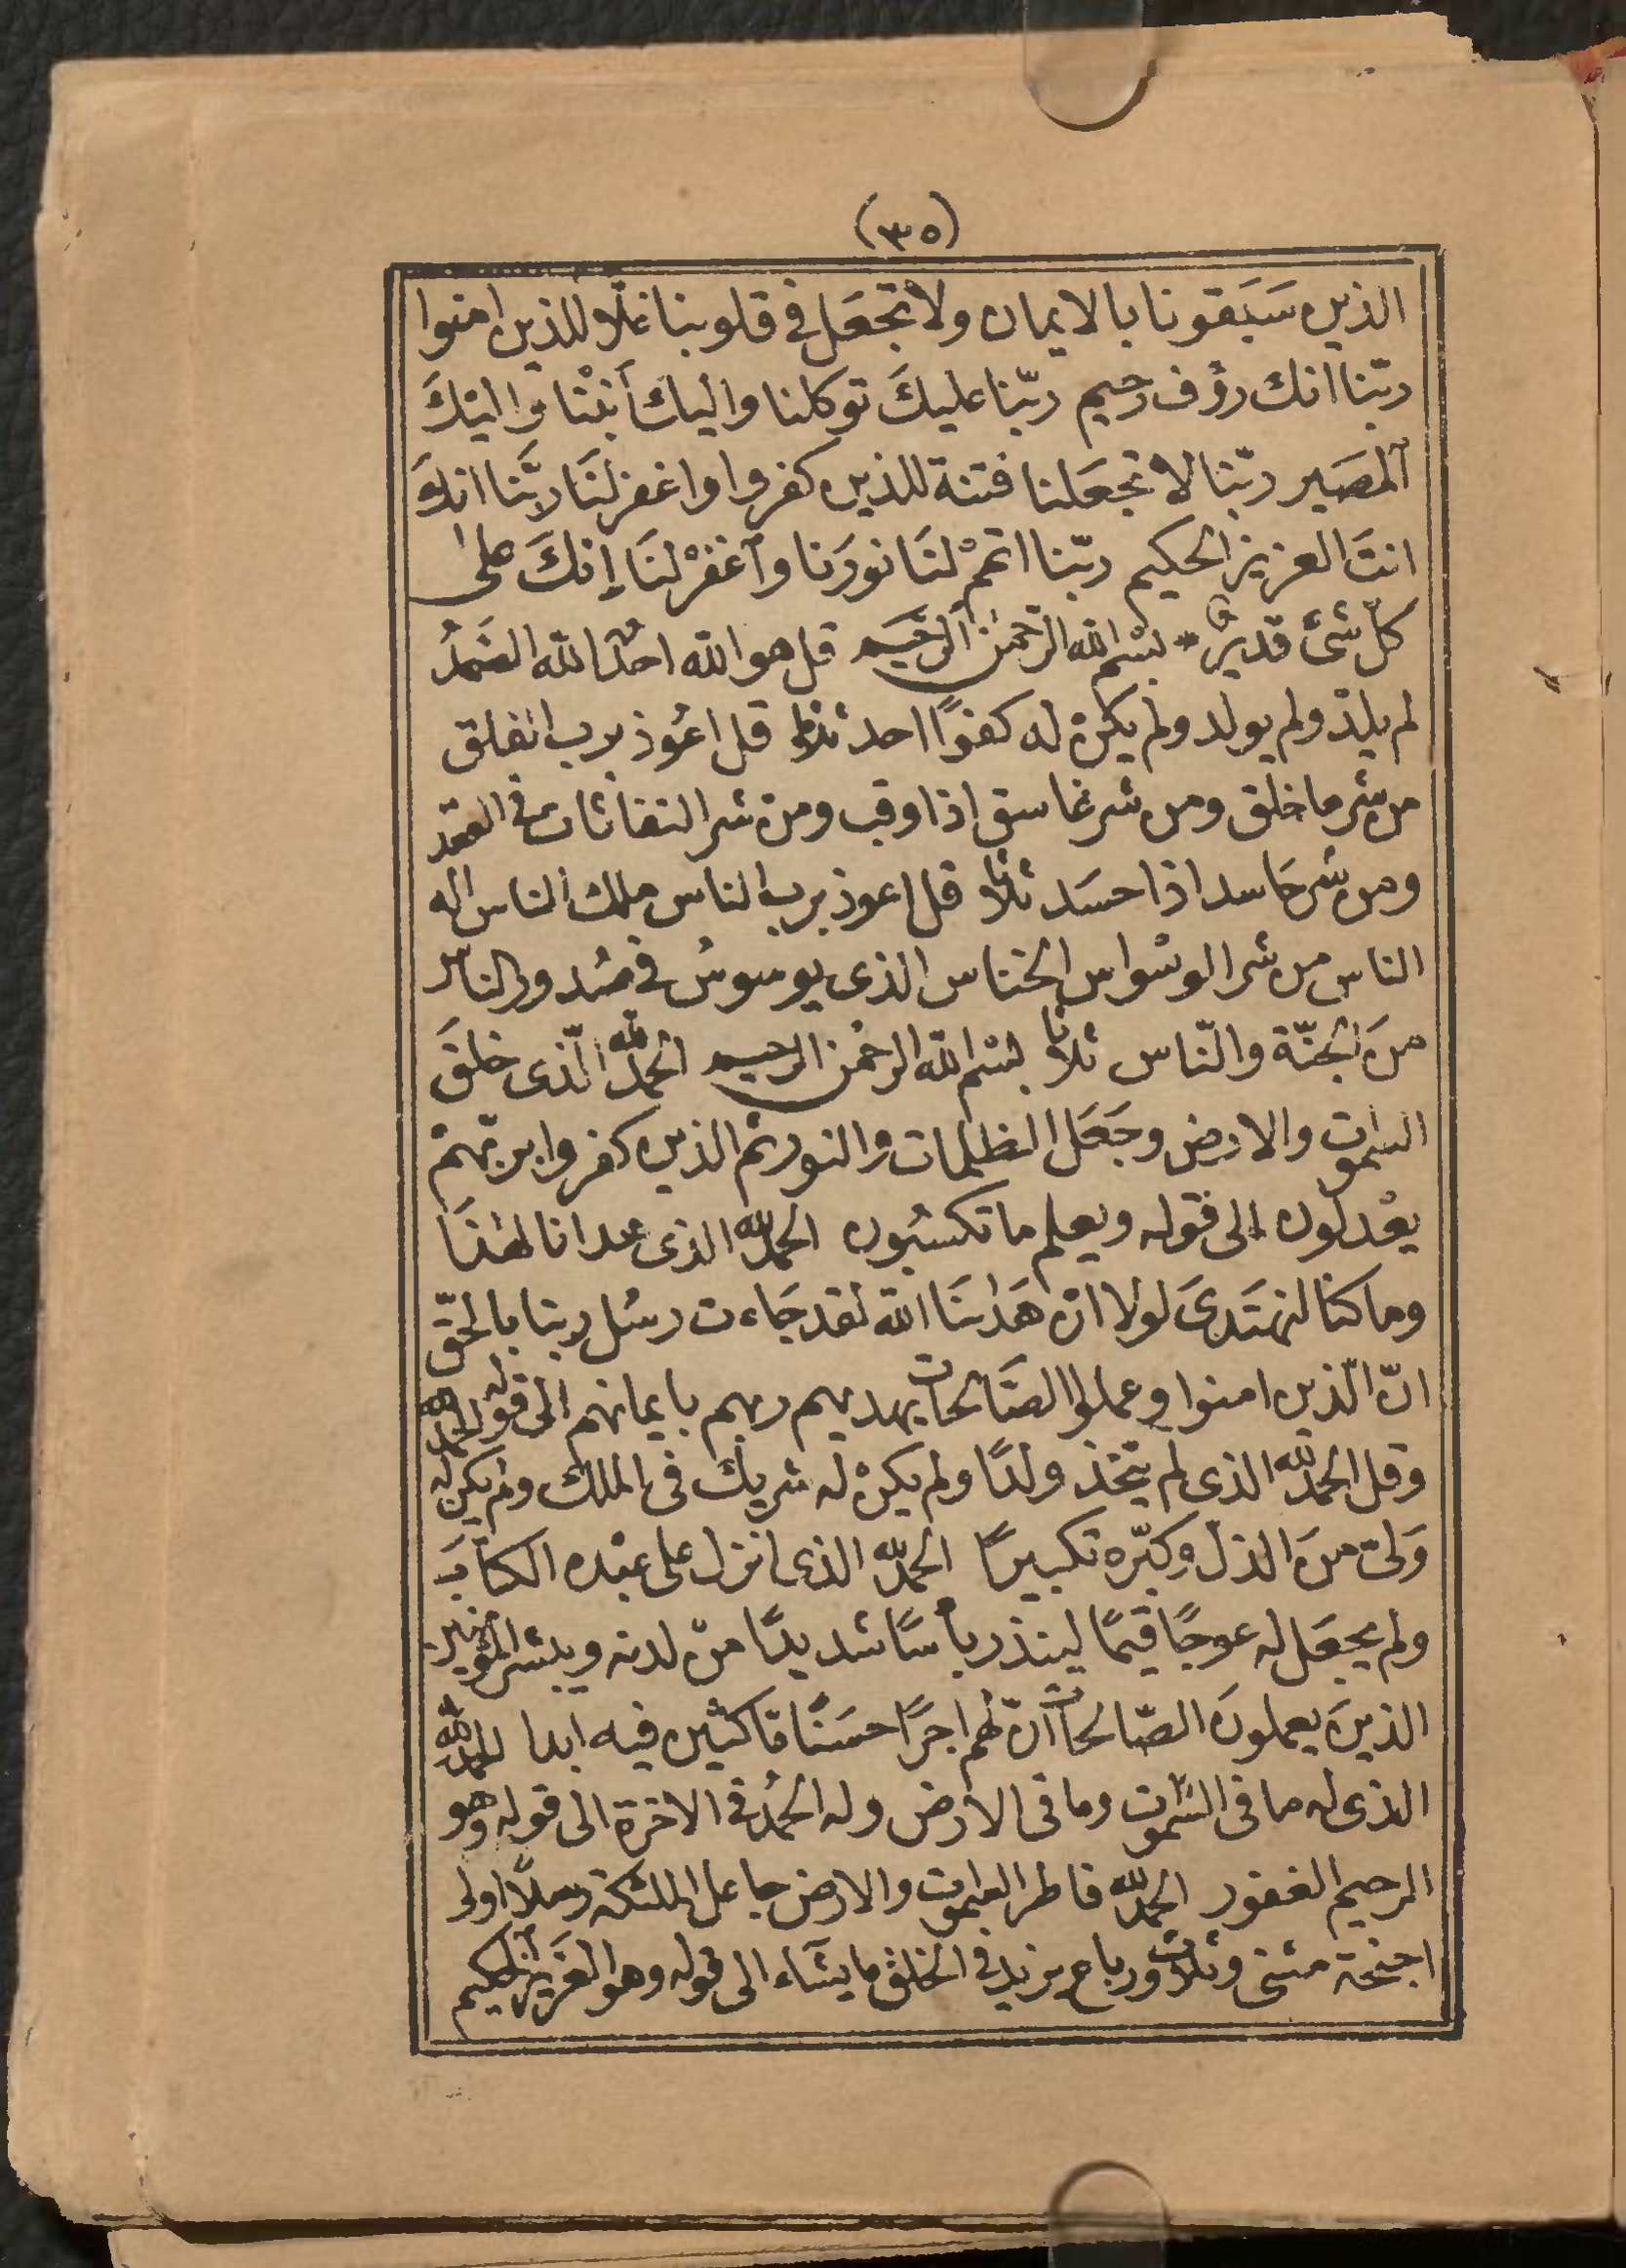 (٣٥)
الذين سَبَقونا بالايمان ولا تجعَل فى قلوبنا غلّا للذين امنوا
ربّنا انك رؤف رحيم ربّنا عليكَ توكلنا واليك أَنبْنا واليْكَ
اَلمصَير ربّنا لا تجعَلنا فتنة للذين كفروا واغفرلنَا ربَّنا انك
انتَ العزيز الحكيم ربّنا اتممْ لنَا نورَنا وٱغفرْ لنَا إنكَ على
كلّ شئ قديرٌ * بسْم الله الرّحمٰن ٱلرّحيم قل هو الله احدٌ الله الصَمدُ
لم يلدْ ولم يولد ولم يكنْ له كفوًا احد ثلاثا قل اعُوذ برب الفلق
من شر ما خلق ومن شر غاسق اذا وقب ومنْ شر النفاثات فى العقد
ومن شر حَاسد اذا حسَد ثلاثا قل اعوذ برب الناس ملك الناس اله
الناس من شر الوسْواس الخناس الذى يوسوسُ فى صُدور الناس
منَ الجنّة والنّاس ثلاثا بسْم الله الرحمٰن الرحيم الحمدُ لله الّذى خلقَ
السمٰوت والارض وجَعَل الظلمات والنور ثم الذين كفروا بربهمْ
يعْدلون الى قوله ويعلم ما تكسبُون الحمدُ لله الذى هدانا لهٰذَا
وما كنا لنهتَدىَ لولا انْ هَدٰىنَا الله لقد جَاءت رسُل ربنا بالحقّ
انّ الّذين امنوا وعملوا الصَالحات يهديهم ربهم بايمانهم الى قوله الحمد لله
وقل الحمدُ لله الذى لم يتخذ ولدًا ولم يكنْ له شريك فى الملك ولم يكن له
وَلىّ منَ الذلّ وكبّره تكبيرًا الحمدُ لله الذى انزل على عبْده الكتابَ
ولم يجعَل له عوجًا قيمًا لينذر بأسًا شديدًا منْ لدنه ويبشر المؤمنين
الذينَ يعملونَ الصّالحات أنّ لهم اجرًا حسَنًا ماكثين فيه ابدا الحمد لله
الذى له ما فى السّمٰوت وما فى الارض وله الحمْدُ فى الاخرة الى قوله وهو
الرحيم الغفور الحمدُ لله فاطر السمٰوت والارض جاعل الملئكة رسلًا اولى
اجنحة مثنى وثلاث ورباع يزيد فى الخلق ما يشَاء الى قوله وهو العَزيز الحكيم